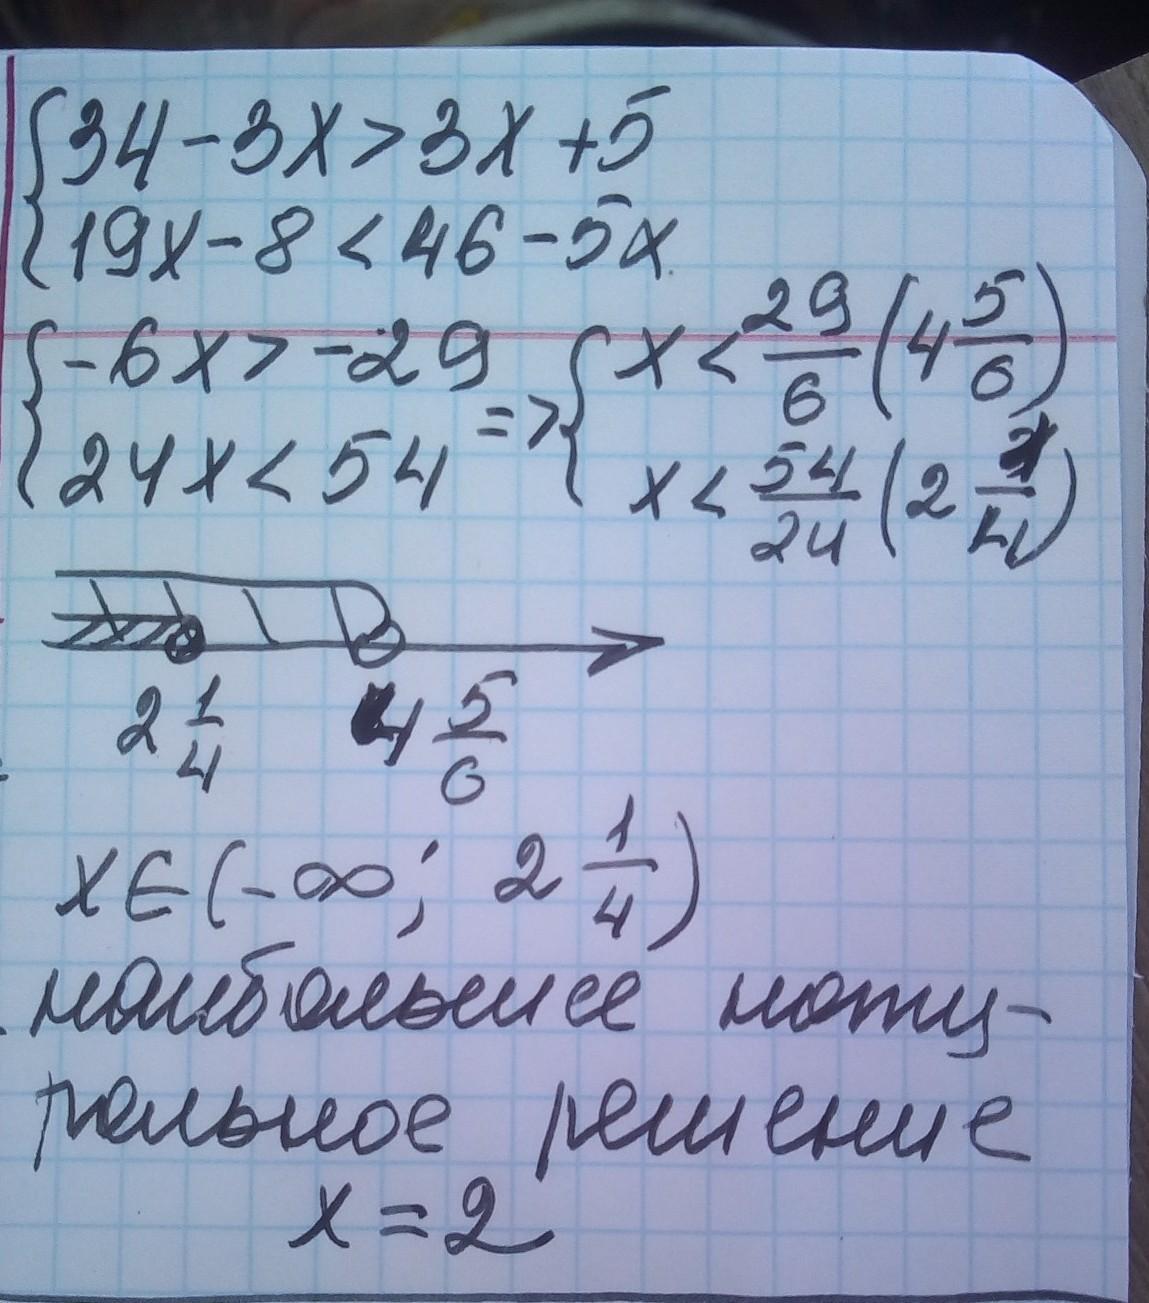 {34-3x>3x+5
{19x-8<46-5x
{-6x>-29 => {x<29/6 (4 5/6)
{24x<54 {x<54/24 (2 1/4)
2 1/4 4 5/6
x∈(-∞; 2 1/4)
наибольшее нату-
ральное решение
x=2